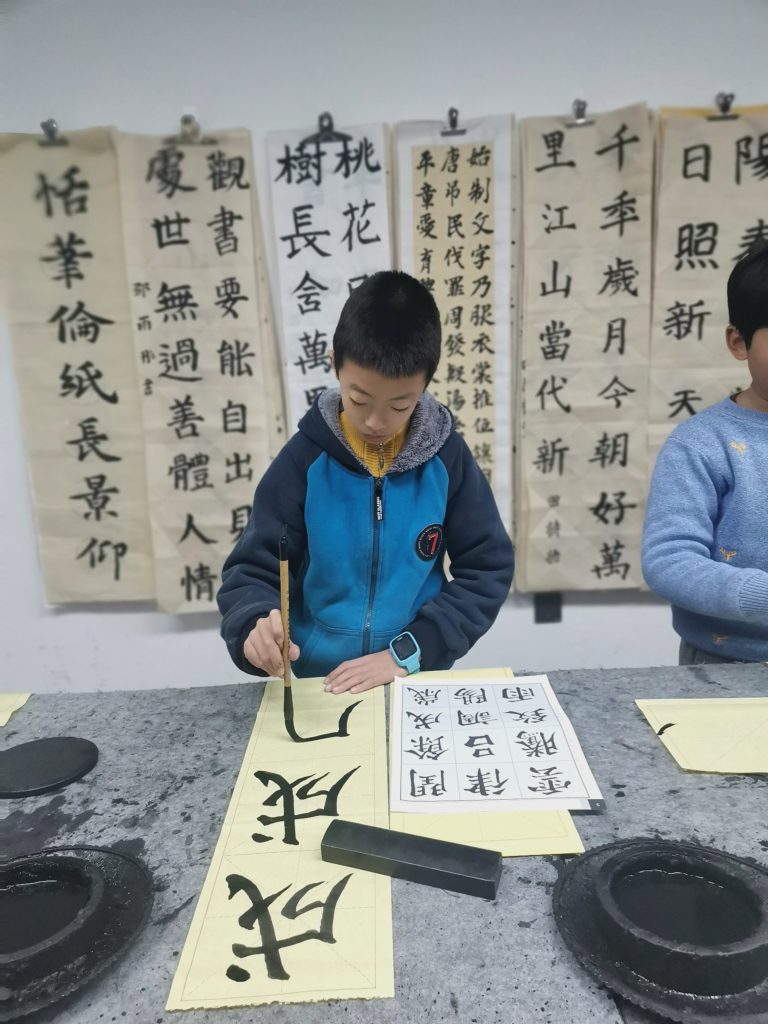 恬筆倫紙長景仰
觀書要能自出見
處世無過善體人情
邵雨彤書
桃花
樹長舍萬
始制文字乃服衣裳推位讓
唐弔民伐罪周發殷湯
平章愛育
千秊歲月今朝好萬
里江山當代新
陽春
日照新天
7
閏餘成歲
律呂調陽
雲騰致雨
成
成